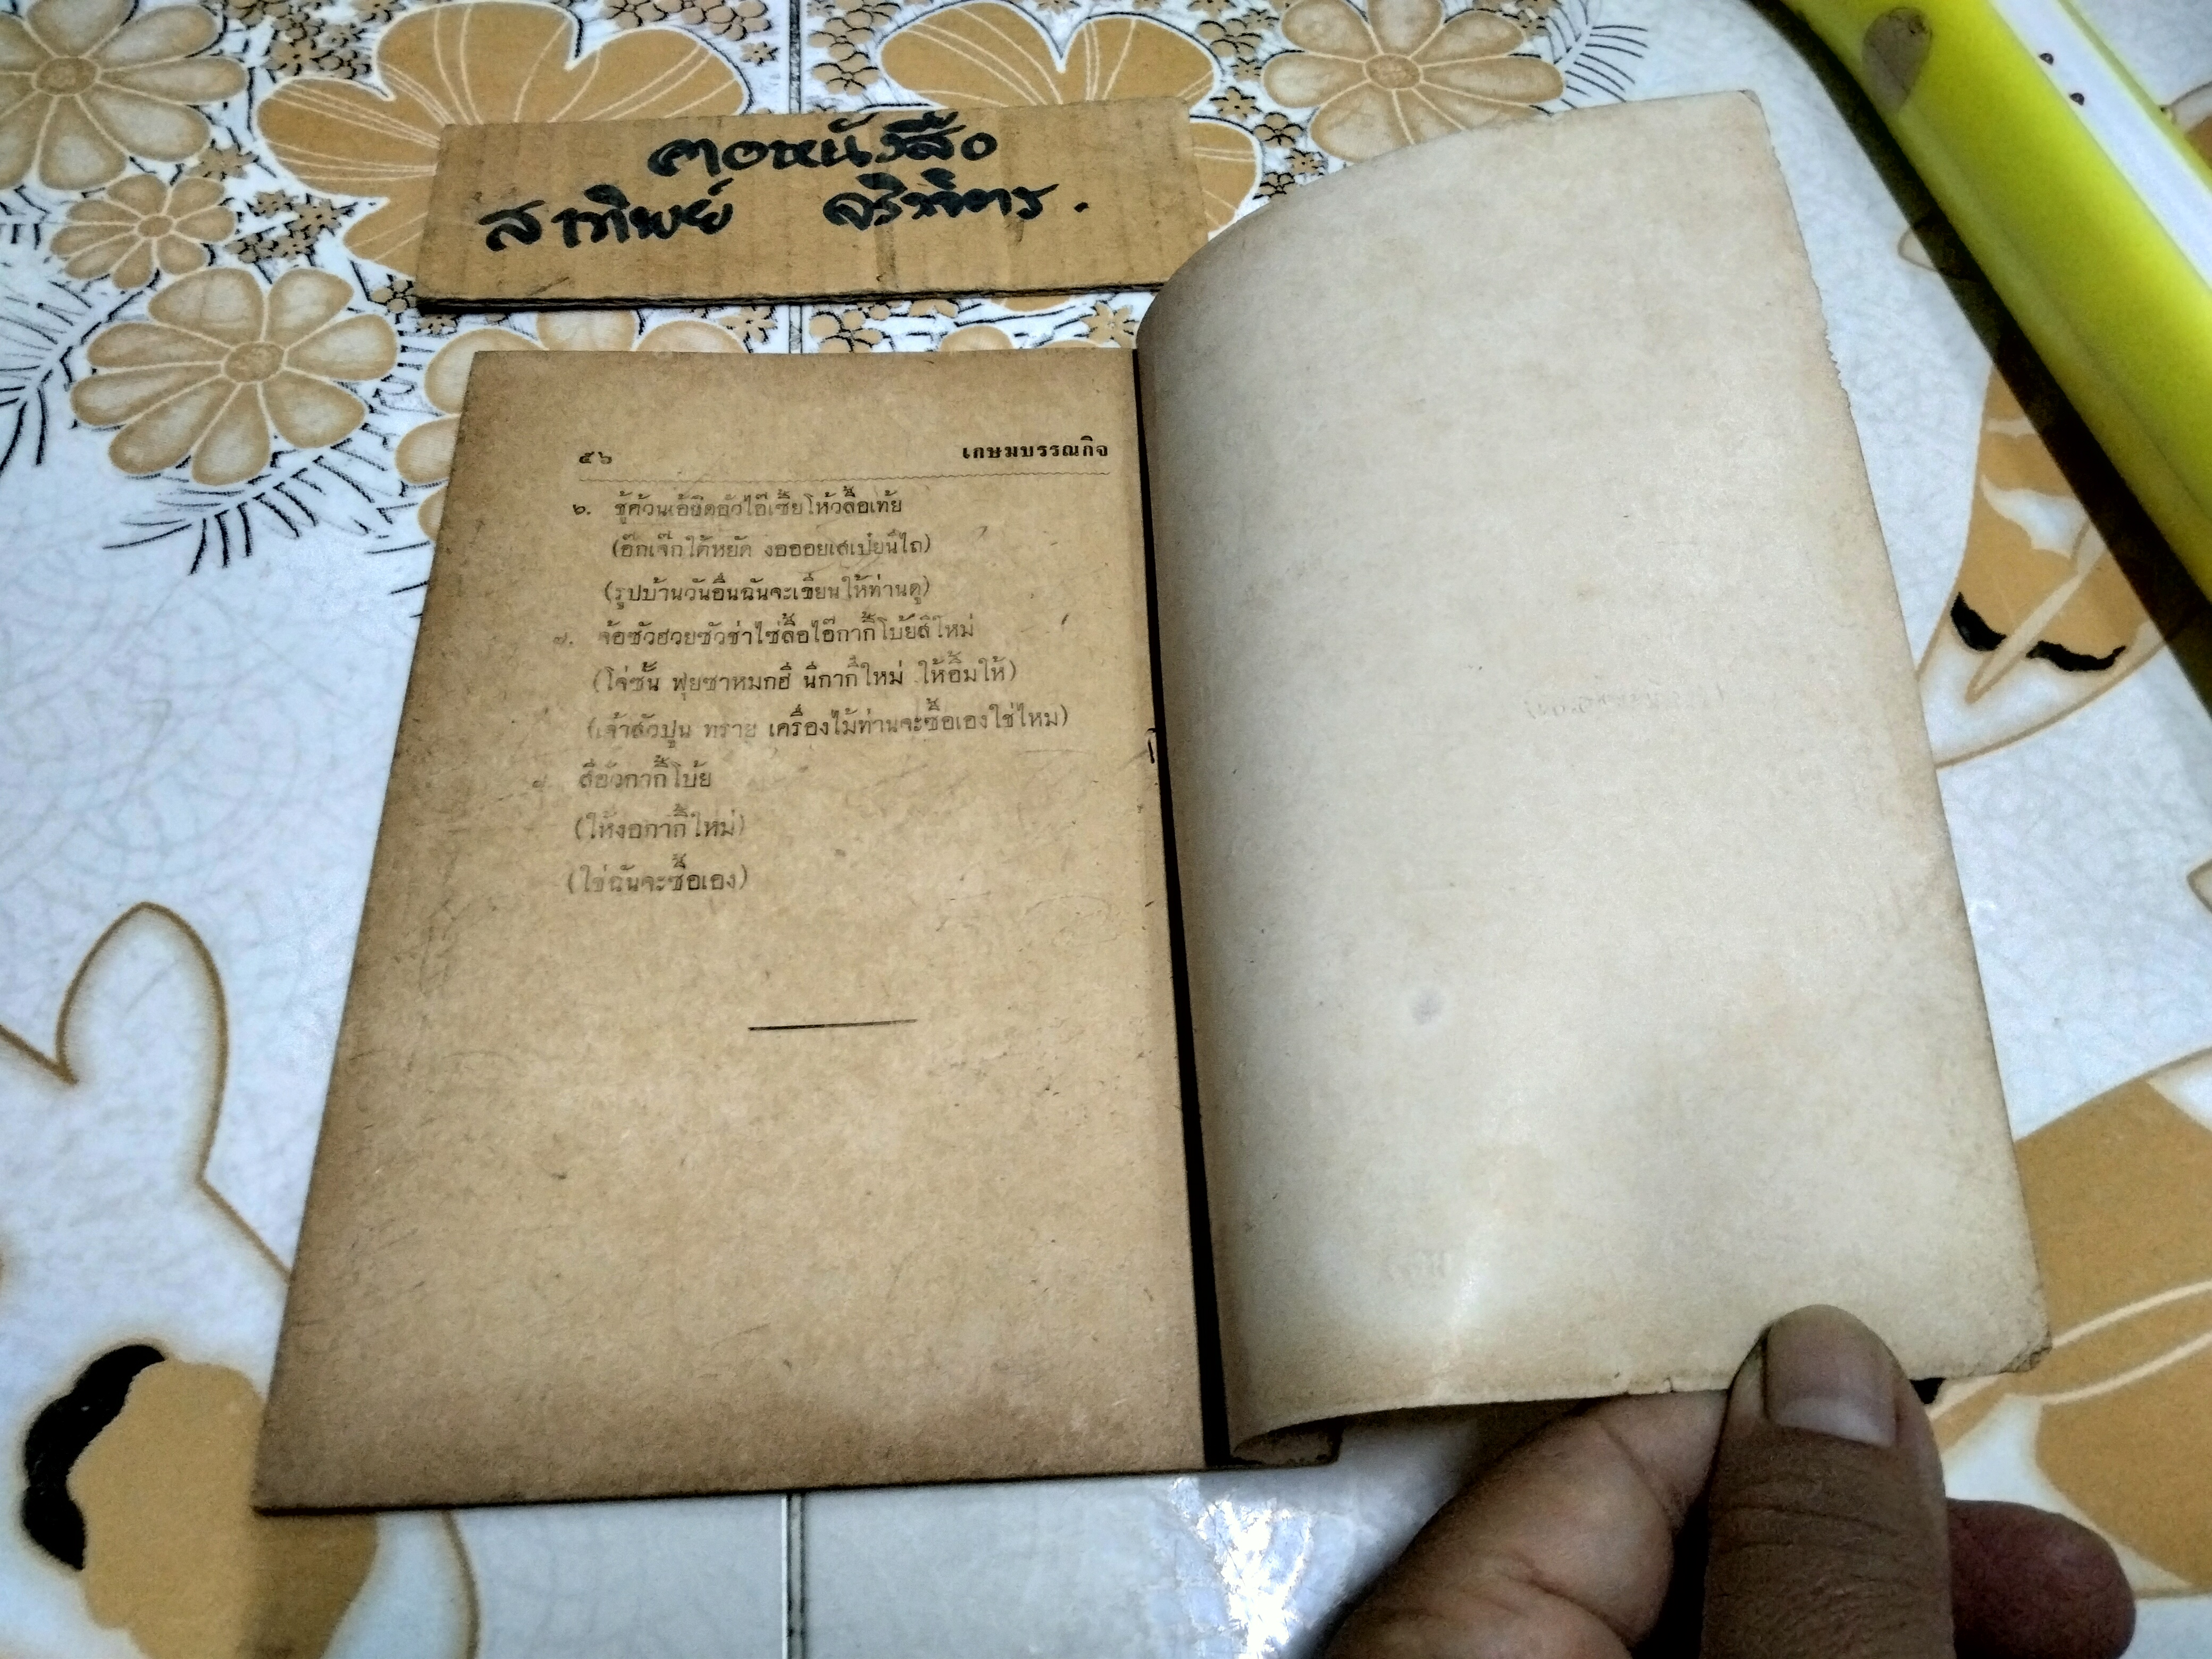 คอหนังสือ
สาทิพย์ จริภัทร.
๕๖ เกษมบรรณกิจ
๖. ชู้ค้วนเอ้ยิดอัวไอ๊เซี้ยโห้วลื้อเทัย
(อ๊กเจ๊กใต้หยัด งอออยเสเปยนี้ไถ)
(รูปบ้านวันอื่นฉันจะเขียนให้ท่านดู)
๗. จ้อซัวฮวยซัวช่าไซ่ลื้อไอ๊กากี้โบ้ยสิใหม่
(โจ่ซั้น ฟุยซาหมกฮี นีกากี้ใหม่ ให้อื้มให้)
(เจ้าสัวปูน ทราย เครื่องไม้ท่านจะซื้อเองใช่ไหม)
สีอัวกากี้โบ้ย
(ให้งอกากี้ใหม่)
(ใช่ฉันจะซื้อเอง)